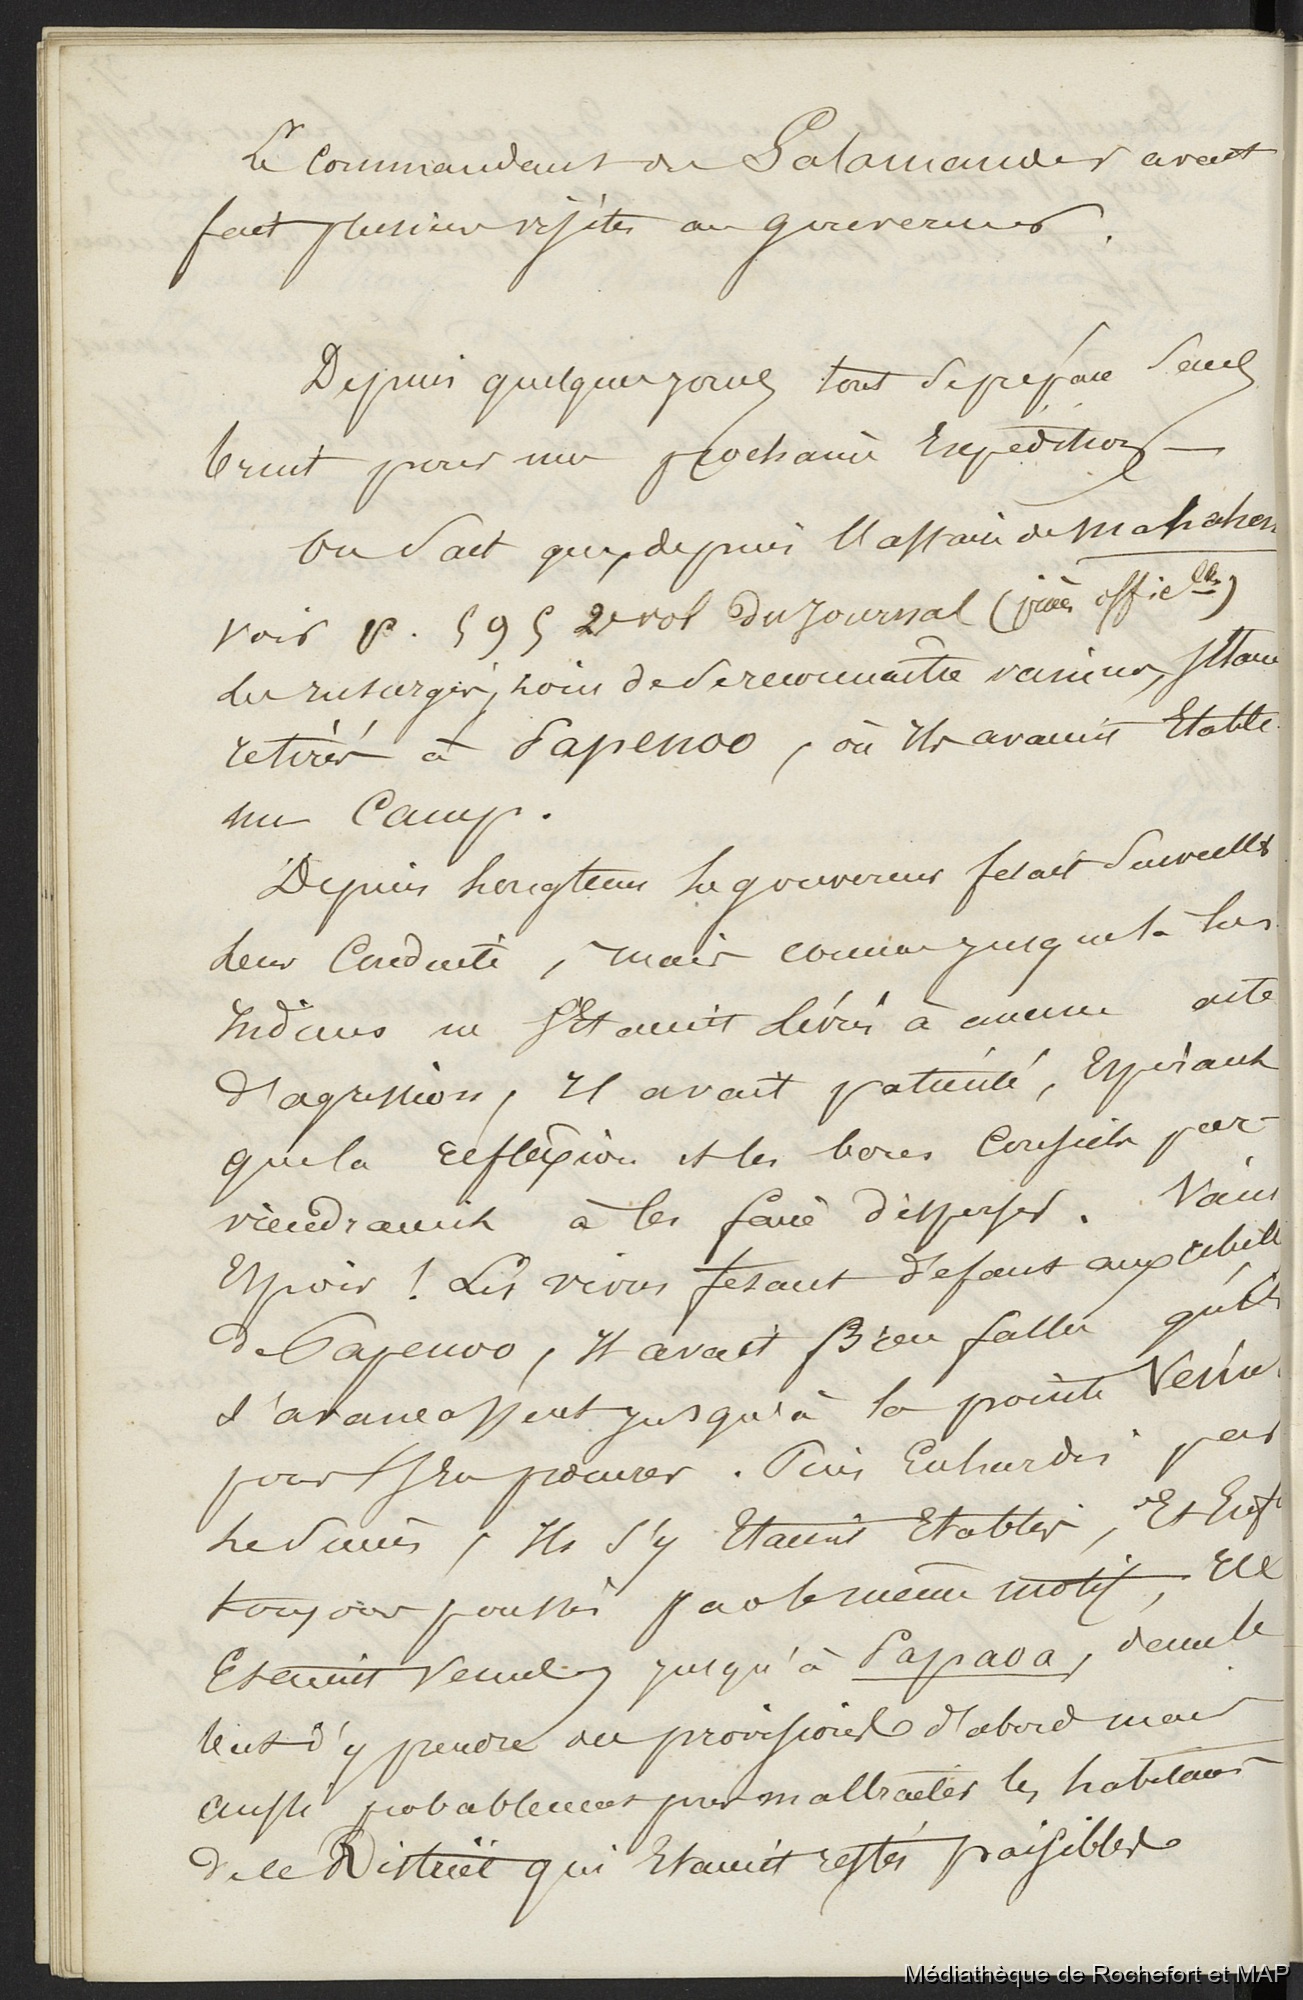 Le Commandant du Salamander avait
fait plusieurs visites au gouverneur.
Depuis quelques jours tout se prépare sans
bruit pour une prochaine Expédition —
On sait que, depuis l'affaire de Mahahena
voir p. 595 2e vol du Journal (pièces officielles)
les insurgés, loin de se reconnaître vaincus, s'étaient
retirés à Papenoo, où Ils avaient Etabli
un Camp.
Depuis longtems le gouverneur fesait surveiller
leur Conduite, mais comme jusque là les
Indiens ne s'Etaient livrés à aucun acte
d'agression, Il avait patienté, Espérant
que la reflexion et les bons Conseils par-
viendraient à les faire disperser. Vain
Espoir ! Les vivres fesant défaut aux rebelles
de Papenoo, Il avait Bien fallu qu'ils
s'avançassent jusqu'à la pointe Vénus
pour s'En procurer. Puis Enhardis par
le succès, Ils s'y Etaient Etablis, Et Enfin
toujours poussés par le même motif, Ils
Etaient venus jusqu'à Papaoa, dans le
but d'y prendre des provisions d'abord mais
aussi probablement pour maltraiter les habitans
de ce District qui Etaient restés paisibles
Médiathèque de Rochefort et MAP